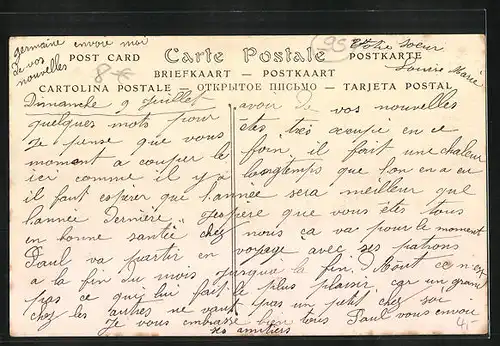 germaine envoie moi
de vos
nouvelles
(95
Votre soeur
Louise Marie
POST CARD Carte Postale POSTKARTE
8€
BRIEFKAART — POSTKAART
CARTOLINA POSTALE — ОТКРЫТОЕ ПИСЬМО — TARJETA POSTAL
Dimanche 9 Juillet avoir de vos nouvelles
quelques mots pour
Je pense que vous êtes très occupé en ce
moment a couper le foin, il fait une chaleur
ici comme il y a longtemps que l'on en a eu
il faut espérer que l'année sera meilleur que
l'année dernière. J'espère que vous êtes tous
en bonne santée chez nous ça va pour le moment
Paul va partir en voyage avec ses patrons
a la fin du mois jusque la fin d'Août ce n'est
pas ce qui lui fait le plus plaisir car un grand
chez les autres ne vaut pas un petit chez soi
Je vous embrasse bien tous Paul vous envoie
ses amitiés
4,-